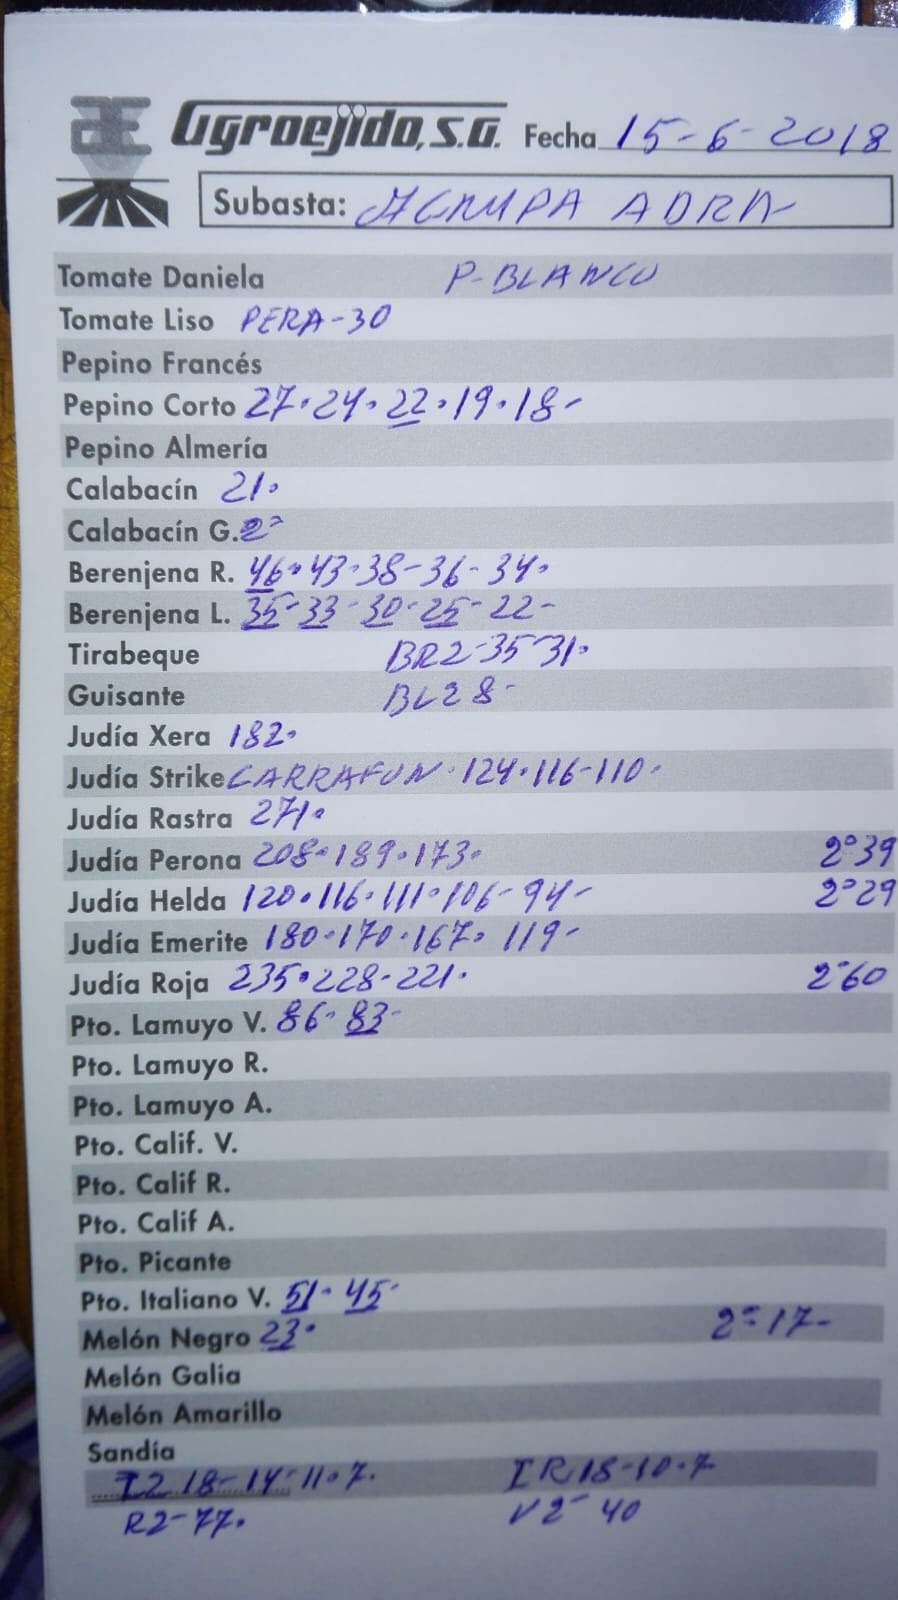 Agroejido, S.A. Fecha 15-6-2018
Subasta: AGRUPA ADRA
Tomate Daniela P-BLANCO
Tomate Liso PERA-30
Pepino Francés
Pepino Corto 27·24·22·19·18-
Pepino Almería
Calabacín 21·
Calabacín G. 2º
Berenjena R. 46·43·38-36-34·
Berenjena L. 35-33-30-25-22-
Tirabeque BR2-35-31·
Guisante BL28-
Judía Xera 182·
Judía Strike GARRAFON·124·116-110·
Judía Rastra 271·
Judía Perona 208·189·173· 2º39
Judía Helda 120·116·111·106-94- 2º29
Judía Emerite 180·170·167· 119-
Judía Roja 235·228-221· 2-60
Pto. Lamuyo V. 86-83-
Pto. Lamuyo R.
Pto. Lamuyo A.
Pto. Calif. V.
Pto. Calif R.
Pto. Calif A.
Pto. Picante
Pto. Italiano V. 51·45-
Melón Negro 23· 2º17-
Melón Galia
Melón Amarillo
Sandía
I2 18-14-11·7· IR18-10·7
R2-77· V2-40